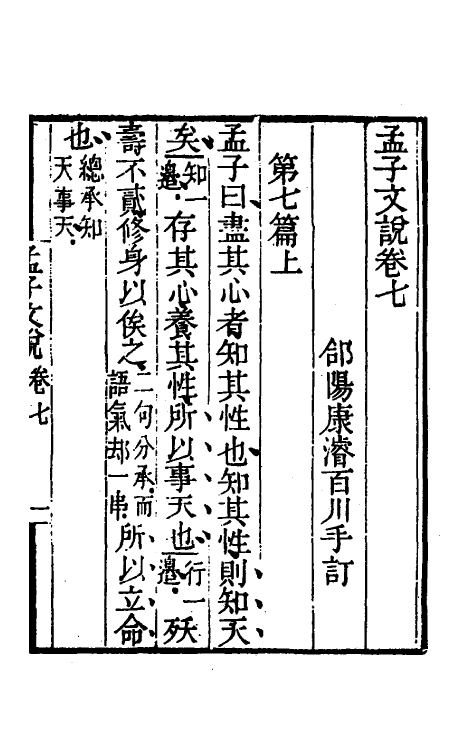 孟子文說卷七
郃陽康濬百川手訂
第七篇上
孟子曰盡其心者知其性也知其性則知天
矣知一邉存其心養其性所以事天也行一邉殀
壽不貳修身以俟之二句分承而語氣却一串所以立命
也總承知天事天
孟子文說 卷七 一